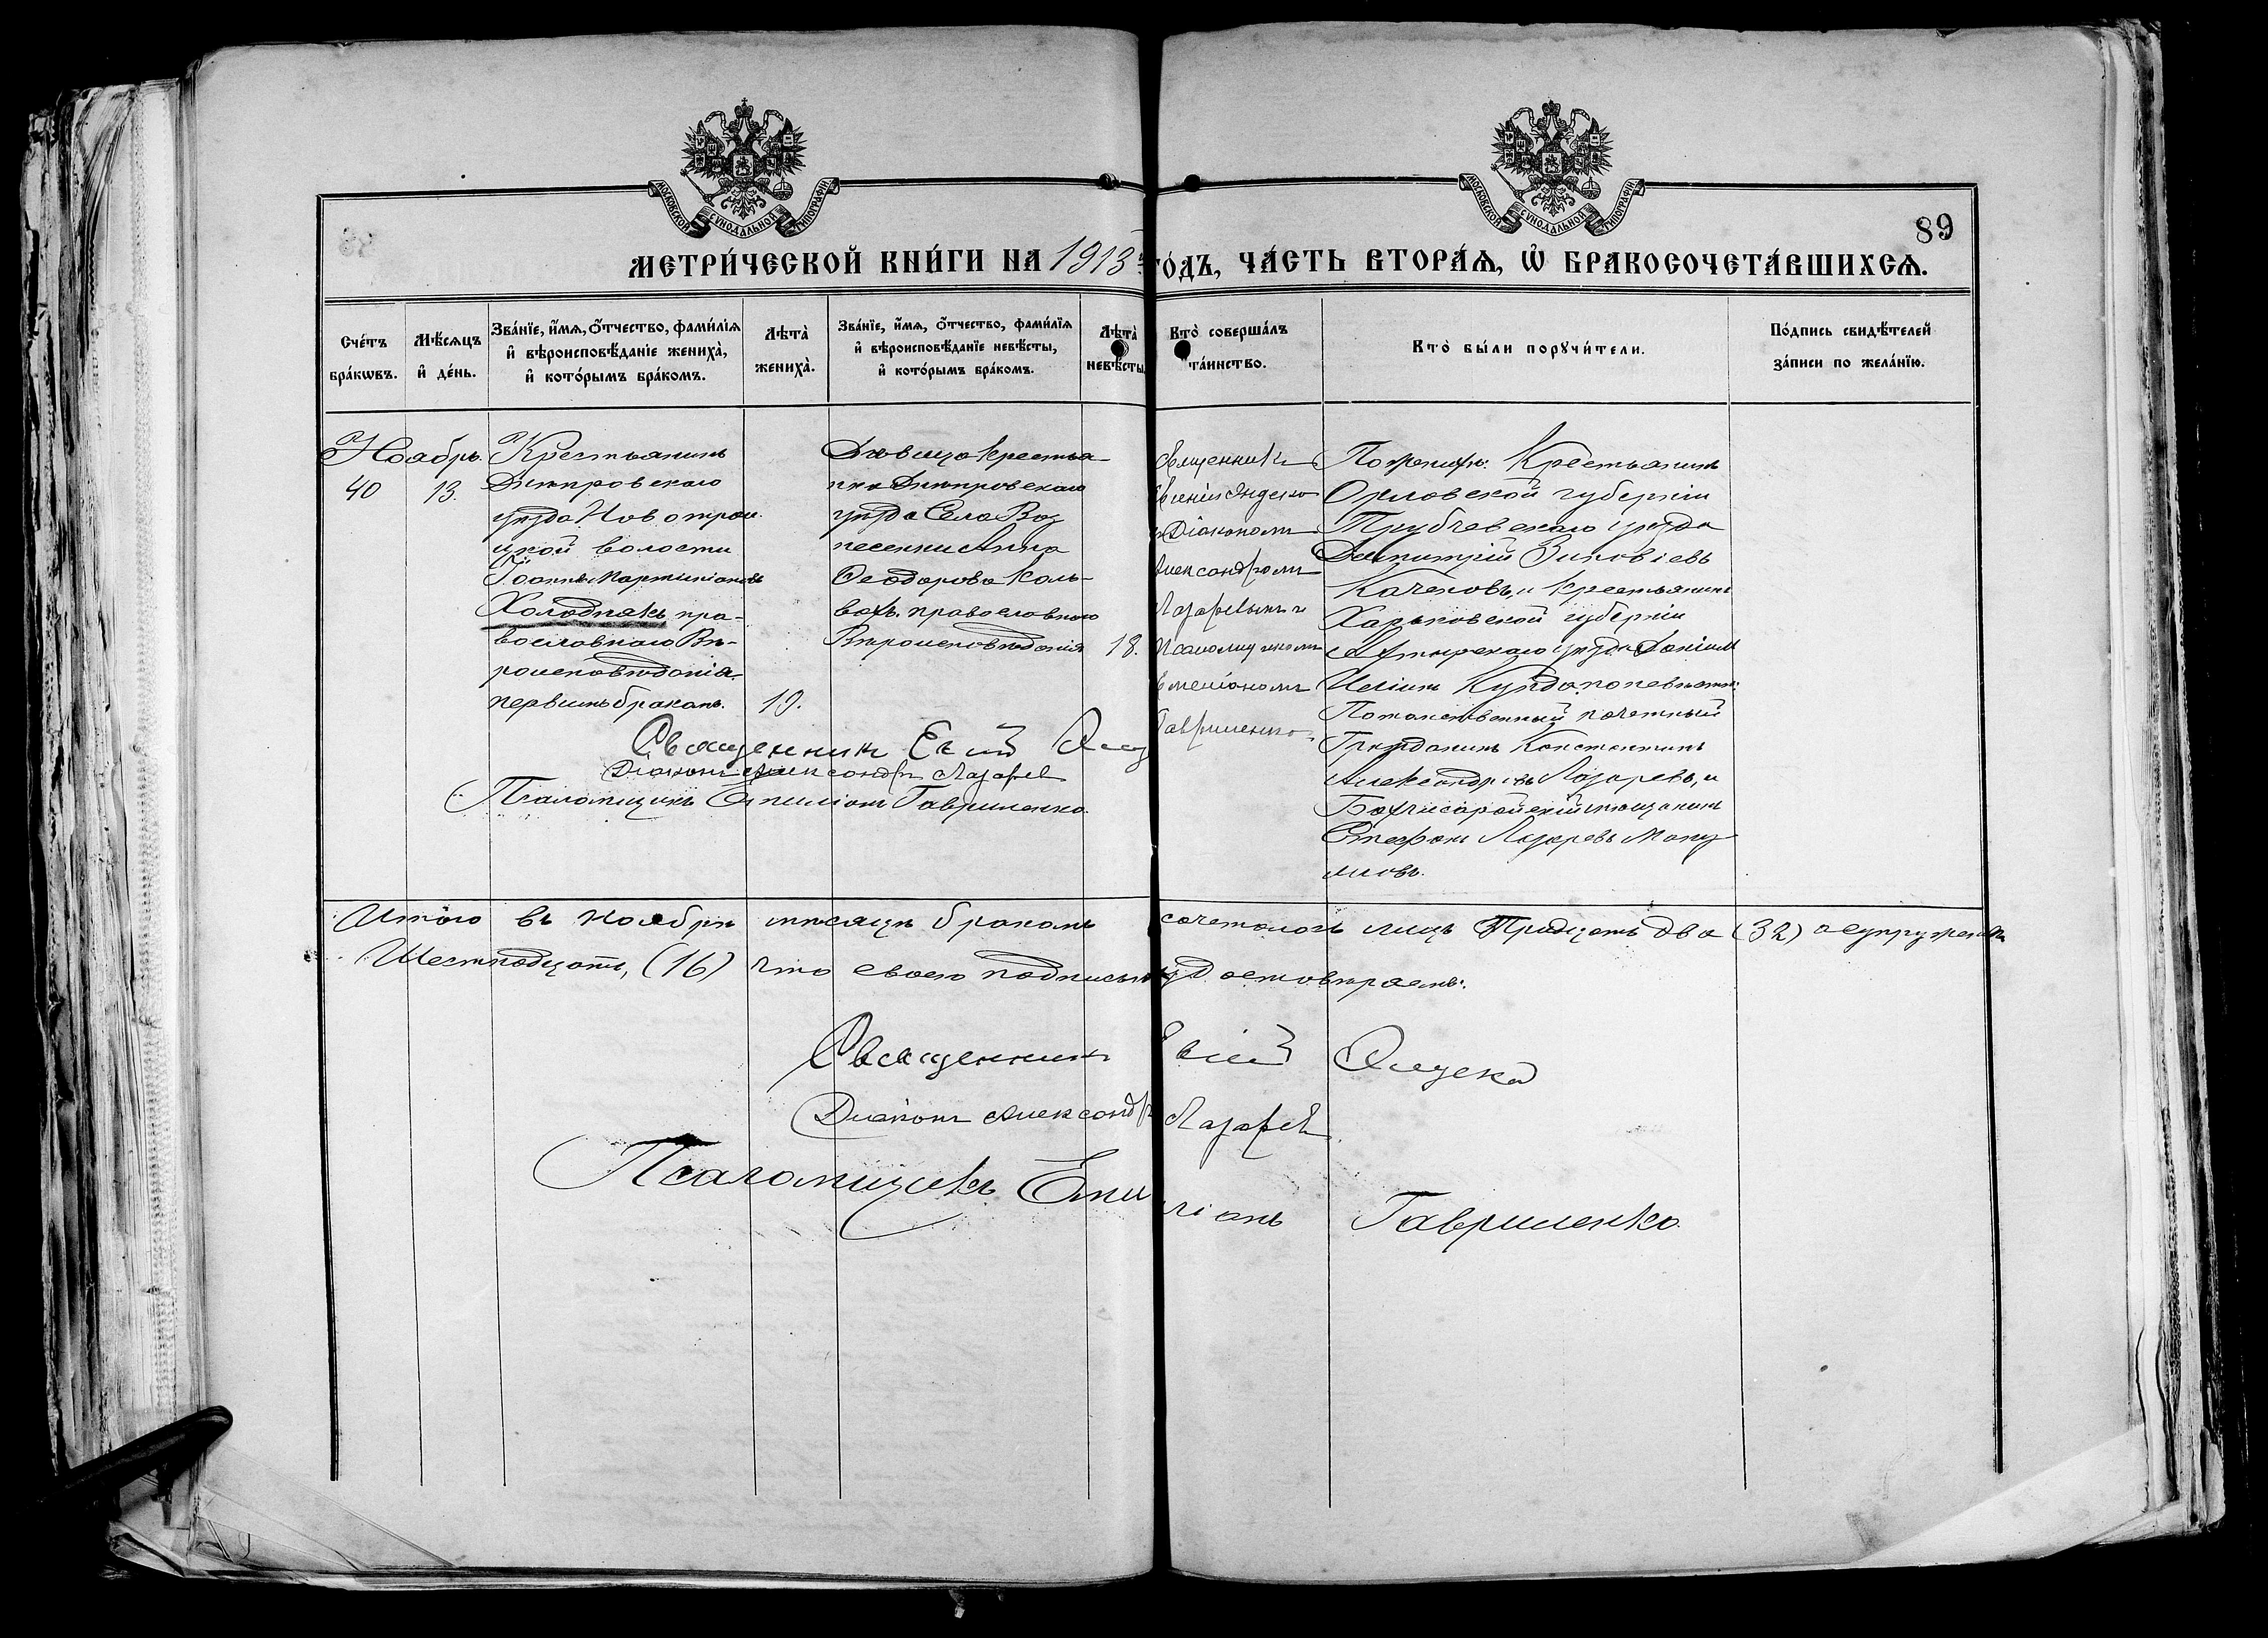 МОСКОВСКОЙ СѴНОДАЛЬНОЙ ТИПОГРАФІИ
МОСКОВСКОЙ СѴНОДАЛЬНОЙ ТИПОГРАФІИ
89
МЕТРИ́ЧЕСКОЙ КНИ́ГИ НА 1913 ГО́ДЪ, ЧА́СТЬ ВТОРА́Ѧ, Ѡ҆ БРАКОСОЧЕТА́ВШИХСѦ.
Сче́тъ бра́кѡвъ.
Мѣ́сѧцъ и҆ де́нь.
Зва́нїе, и҆́мѧ, ѻ҆́тчество, фами́лїѧ и҆ вѣроисповѣ́данїе жениха̀, и҆ кото́рымъ бра́комъ.
Лѣта̀ жениха̀.
Зва́нїе, и҆́мѧ, ѻ҆́тчество, фами́лїѧ и҆ вѣроисповѣ́данїе невѣ́сты, и҆ кото́рымъ бра́комъ.
Лѣта̀ невѣ́сты.
Кто̀ соверша́лъ та́инство.
Кто̀ бы́ли порꙋчи́тели.
По́дпись свидѣ́телей за́писи по жела́нїю.
Ноябрь.
40
13.
Крестьянинъ
Днѣпровскаго
уѣзда Новотрои
цкой волости
Іоаннъ Мартиніановъ
Холоднякъ пра-
вославнаго Вѣ-
роисповѣданія
первымъ бракомъ.
19.
Дѣвица крестья-
нка Днѣпровскаго
уѣзда Села Воз
несенки Анна
Ѳеодорова Коль-
вахъ, православнаго
Вѣроисповѣданія
18.
Священникъ
Діакономъ
Александромъ
Лазаревымъ и
Псаломщикомъ
Емеліаномъ
Гавриленко.
По женихѣ: Крестьянинъ
Орловской губерніи
Трубчевскаго уѣзда
Димитрій Зиновіевъ
Каченовъ, и крестьянинъ
Харьковской губерніи
Ахтырскаго уѣзда Даніилъ
по невѣстѣ:
Потомственный почетный
Гражданинъ Константинъ
Александровъ Лазаревъ, и
Бахчисарайскій мѣщанинъ
Стефанъ Лазаревъ Ману
иловъ.
Священникъ
Діаконъ Александръ Лазарев
Псаломщикъ Емиліанъ Гавриленко.
Итого въ ноябрѣ мѣсяцѣ бракомъ сочеталось лицъ Тридцать два (32) а супружествъ
Шестнадцать, (16) что своею подписью удостовѣряемъ:
Священникъ
Діаконъ Александръ Лазарев
Псаломщикъ Емиліанъ Гавриленко.